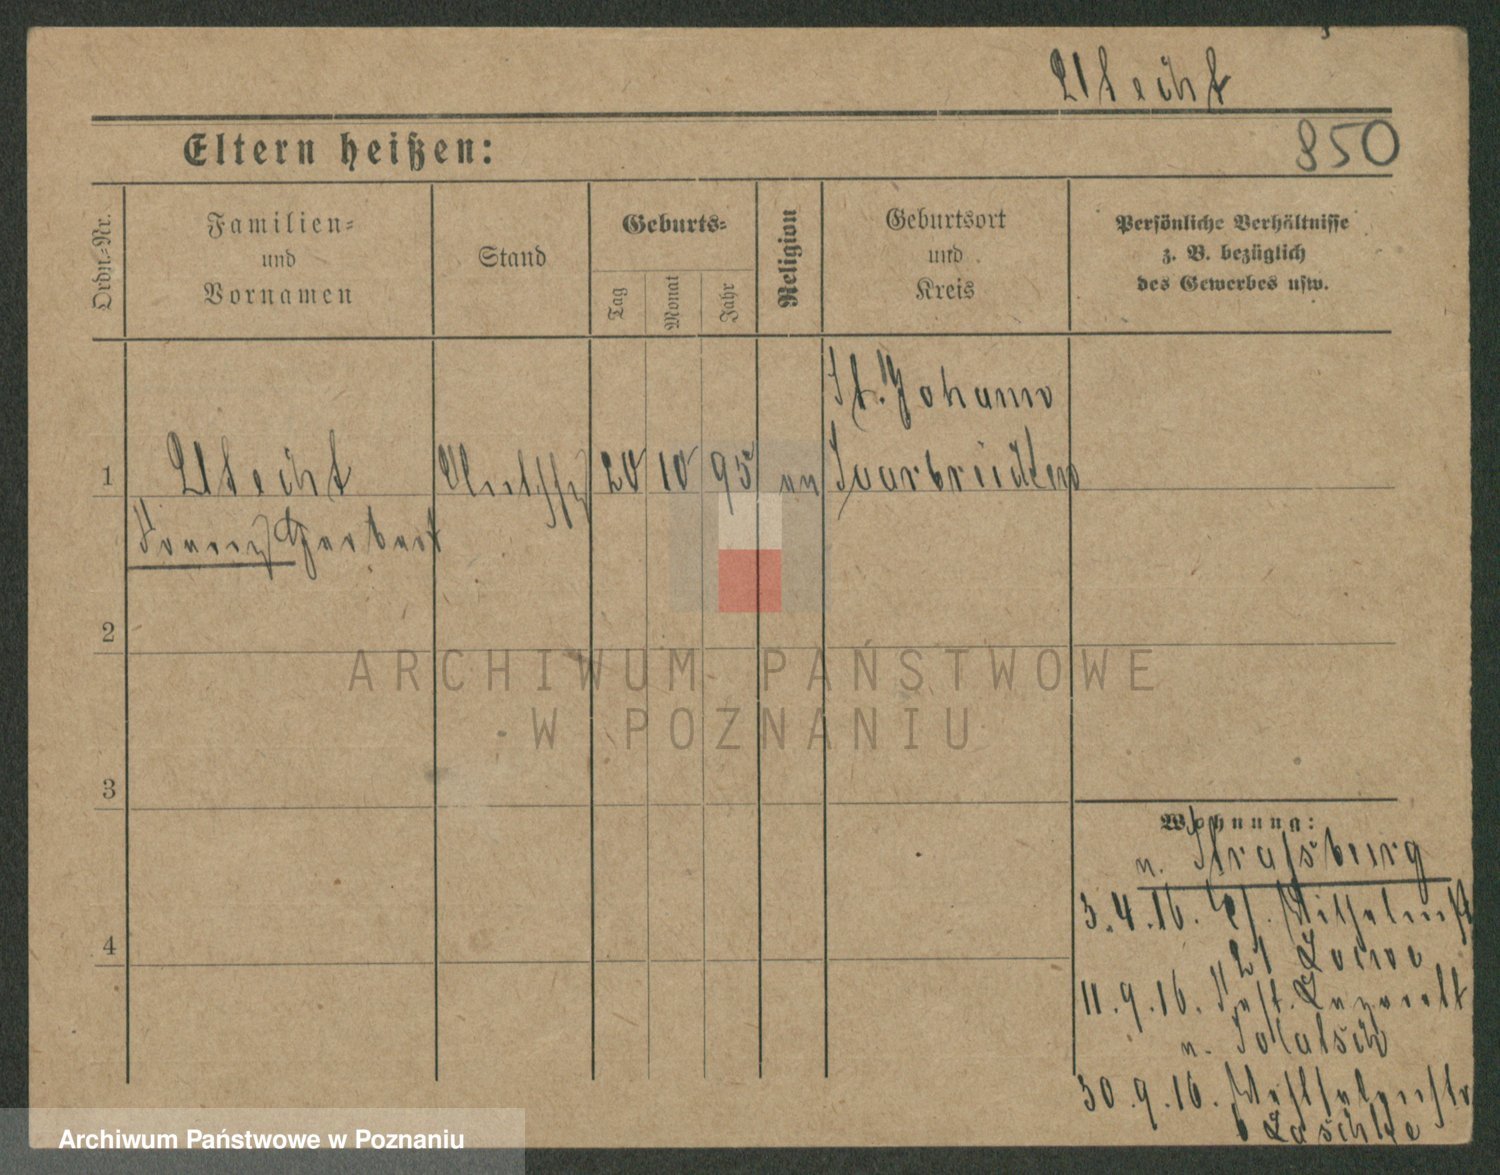 Utecht
850
Eltern heißen:
Ordn.-Nr.
Familien-
und
Vornamen
Stand
Geburts-
Tag
Monat
Jahr
Religion
Geburtsort
und
Kreis
Persönliche Verhältnisse
z. B. bezüglich
des Gewerbes usw.
St. Johann
1
Utecht
20
10
95
Saarbrücken
Franz Herbert
2
ARCHIWUM PAŃSTWOWE
W POZNANIU
3
Wohnung:
n. Strassburg
3.4.16.
4
11.9.16. Fest. Lazarett
n.
30.9.16.
Archiwum Państwowe w Poznaniu